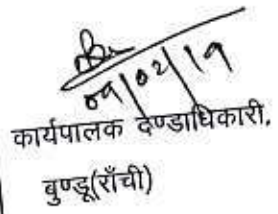 09/02/19
कार्यपालक दण्डाधिकारी,
बुण्डू(राँची)